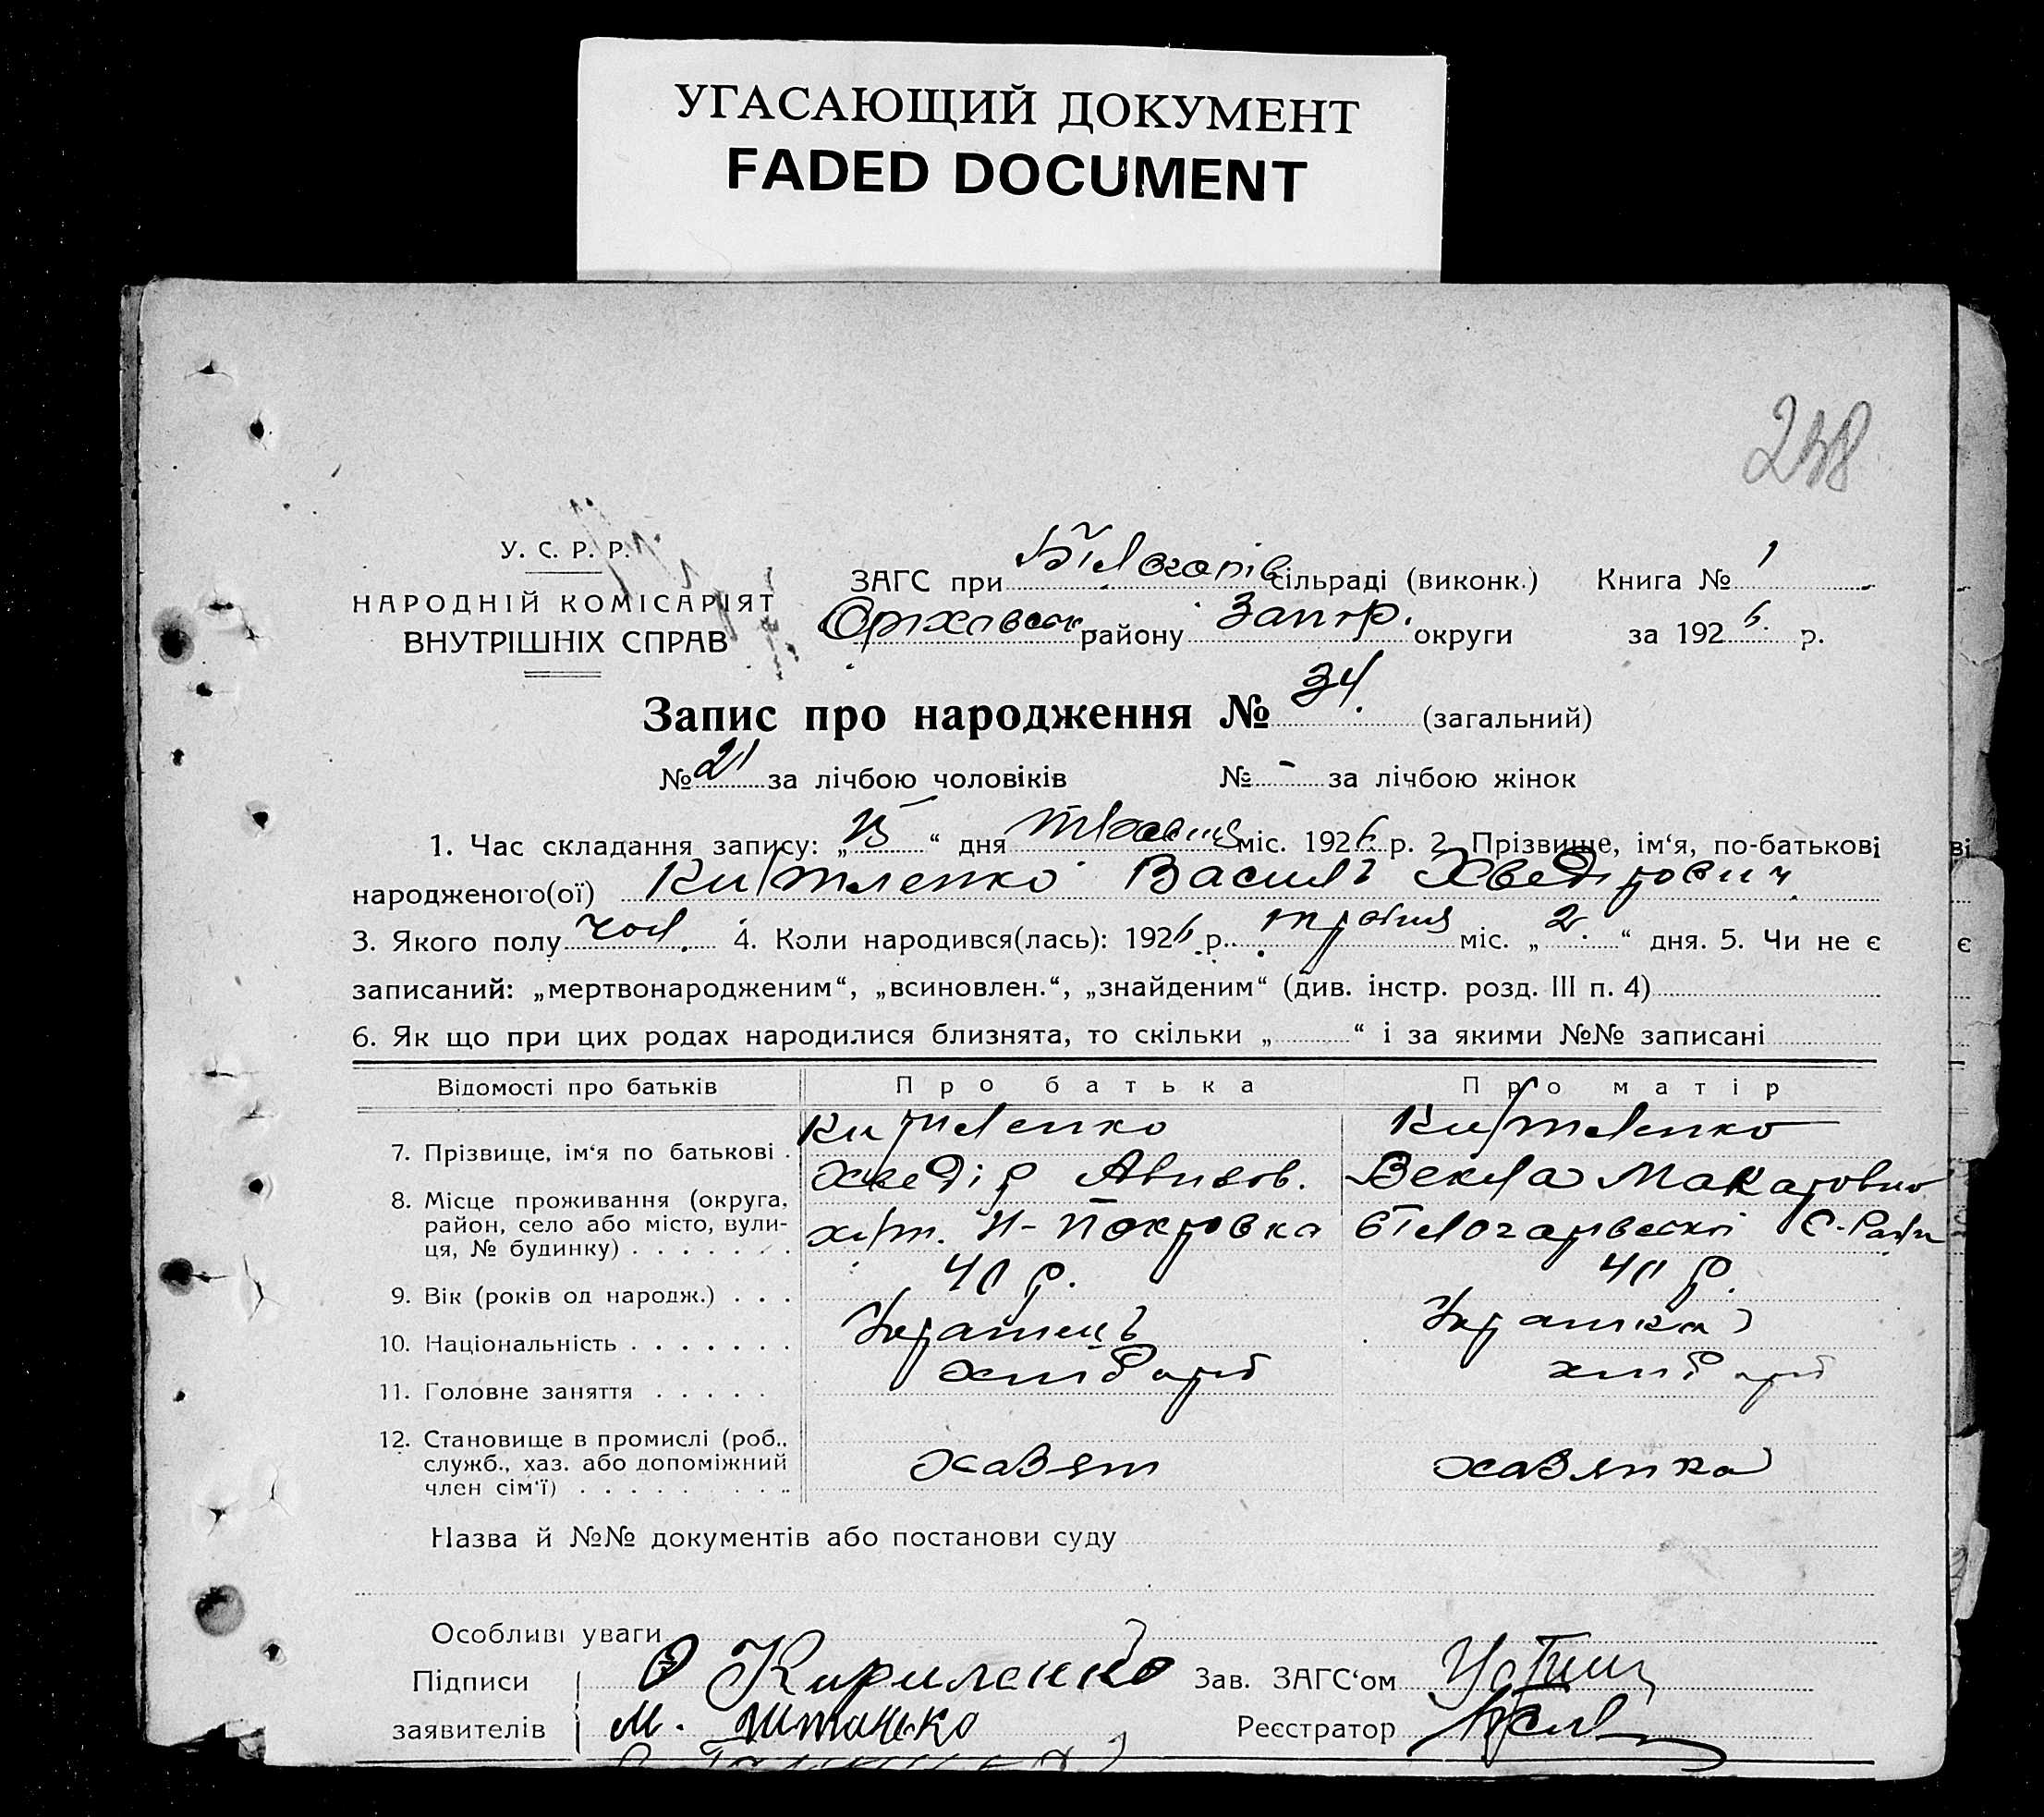 УГАСАЮЩИЙ ДОКУМЕНТ
FADED DOCUMENT
У. С. Р. Р.
НАРОДНІЙ КОМІСАРІЯТ
ВНУТРІШНІХ СПРАВ
ЗАГС при сільраді (виконк.) Книга № 1
району Запор. округи за 1926 р.
Запис про народження № 34. (загальний)
№ 21 за лічбою чоловіків № - за лічбою жінок
1. Час складання запису: „ “ дня травня міс. 1926 р. 2. Прізвище, ім‘я, по-батькові
народженого(ої) Кириленко Василь Хведорович
3. Якого полу чол. 4. Коли народився(лась): 1926 р. травня міс. „2“ дня. 5. Чи не є
записаний: „мертвонародженим“, „всиновлен.“, „знайденим“ (див. інстр. розд. III п. 4)
6. Як що при цих родах народилися близнята, то скільки „ “ і за якими №№ записані
Відомості про батьків Про батька Про матір
7. Прізвище, ім‘я по батькові . Кириленко Кириленко
Хведір Векла Макаровна
8. Місце проживання (округа, район, село або місто, вулиця, № будинку) хут. Н-Покровка С-Ради
9. Вік (років од народж.) . . . 40 р. 40 р.
10. Національність Українець Українка
11. Головне заняття хлібороб хлібороб
12. Становище в промислі (роб., служб., хаз. або допоміжний член сім‘ї) хазяїн хазяйка
Назва й №№ документів або постанови суду
Особливі уваги
Підписи Кириленко Зав. ЗАГС‘ом
заявителів М. Реєстратор